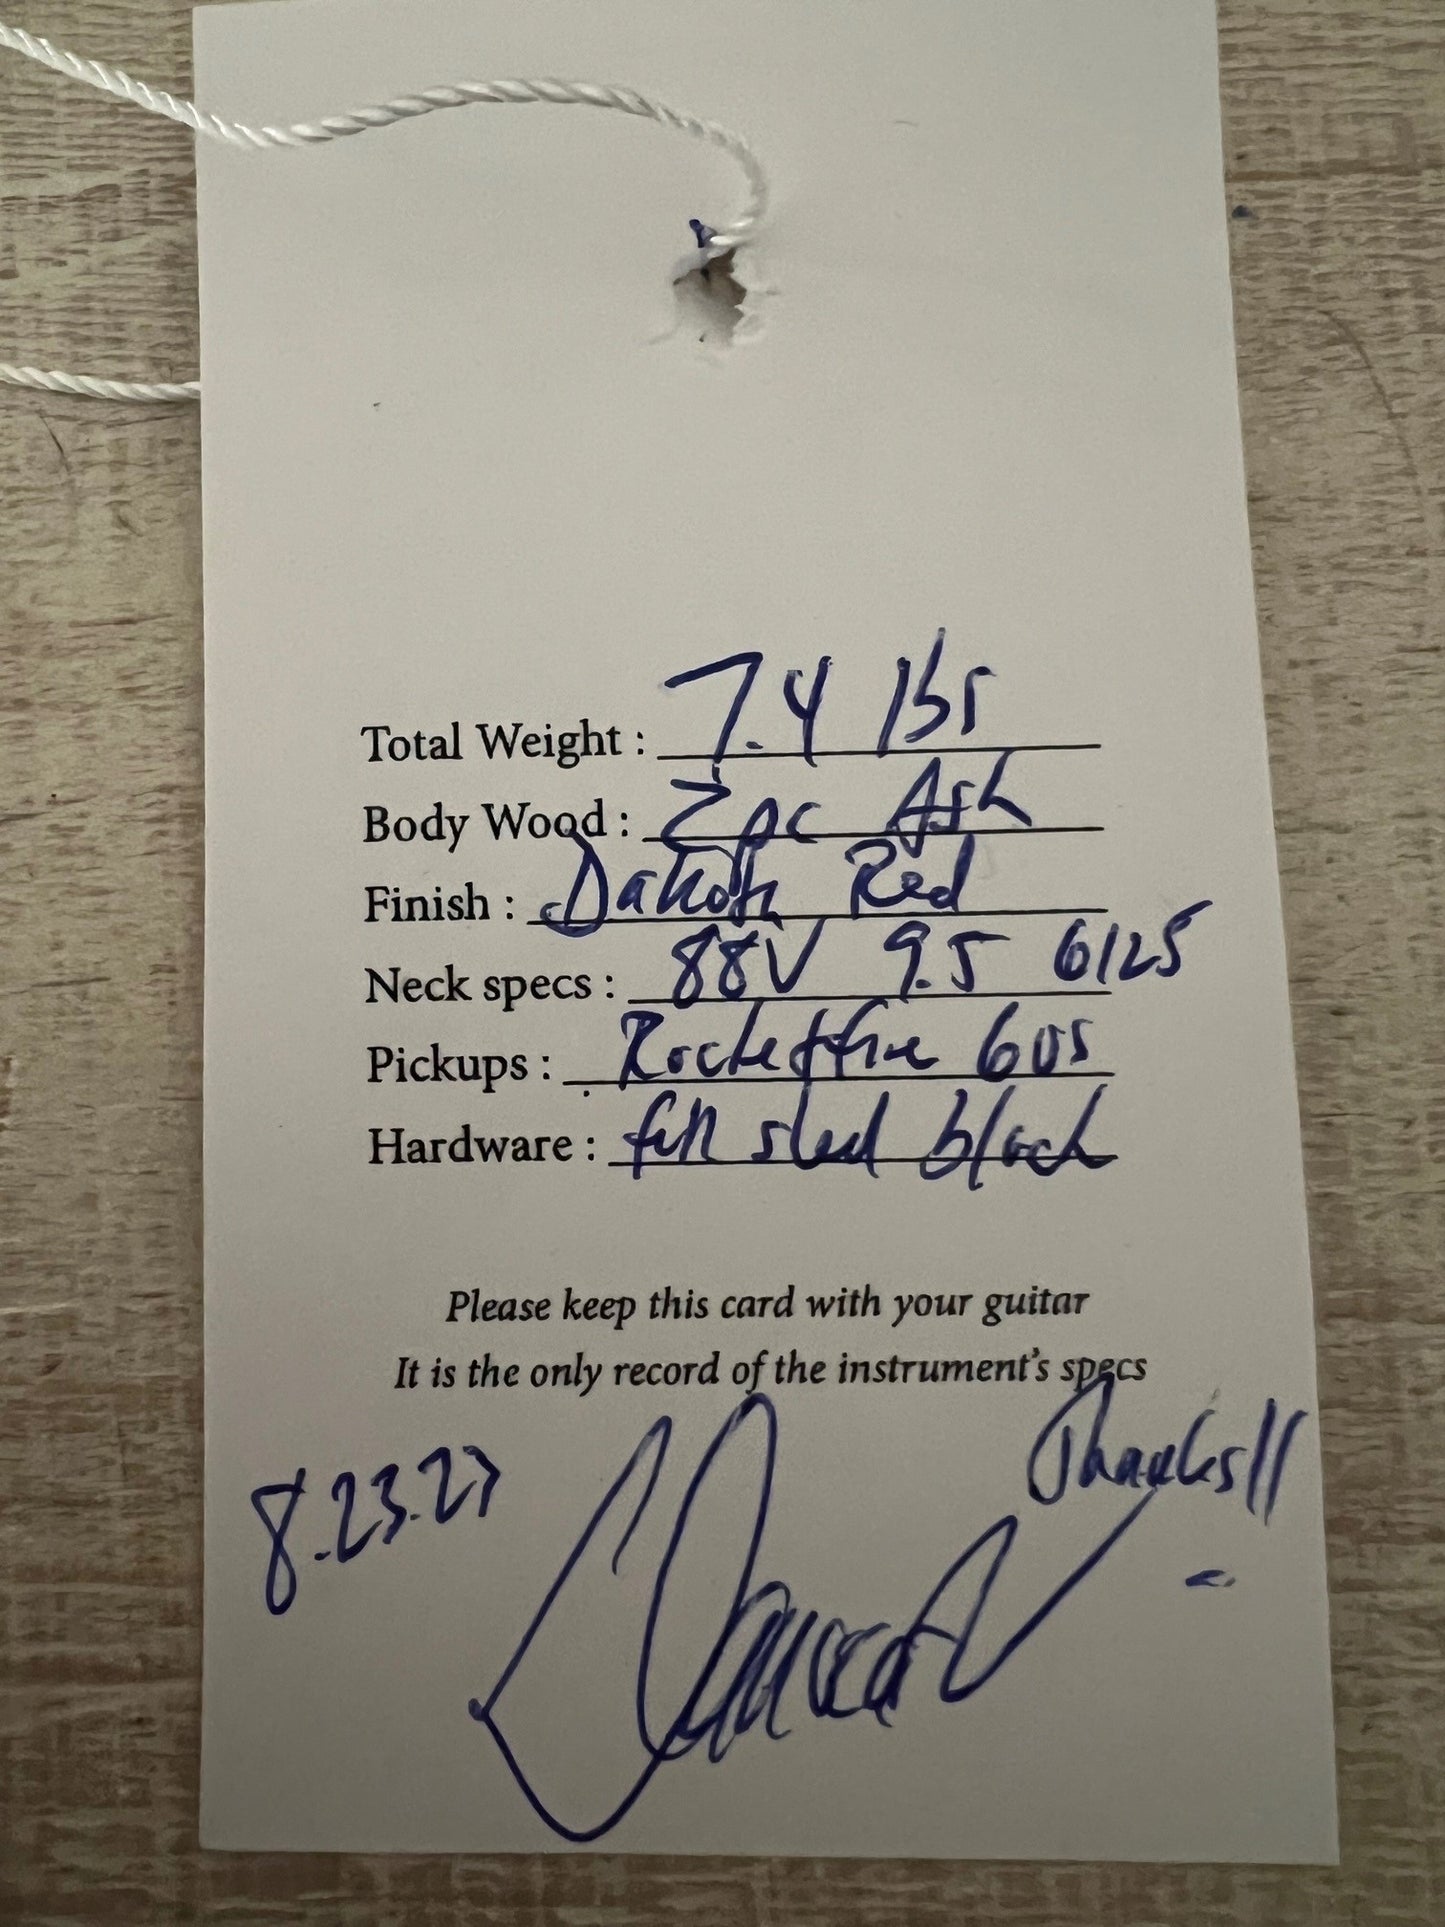 Total Weight : 7.4 lbs
Body Wood : 2pc Ash
Finish : Dakota Red
Neck specs : 88V 9.5 6125
Pickups : Rocketfire 60s
Hardware : full steel block
Please keep this card with your guitar
It is the only record of the instrument's specs
Thanks!!
8.23.23